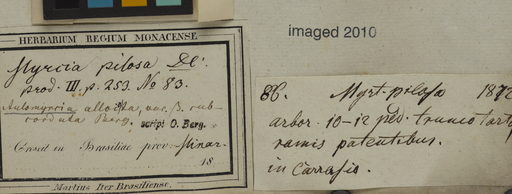 HERBARIUM REGIUM MONACENSE.
Myrcia pilosa DC.
prod. III. p. 253. No 83.
Aulomyrcia alloiota, var. β. sub-
cordata Berg. script O. Berg.
in Brasiliae prov. Minar.
18
Martius Iter Brasiliense.
imaged 2010
86. Myrt. pilosa
arbor 10-12 ped. trunco
ramis patentibus.
in Carrasis.